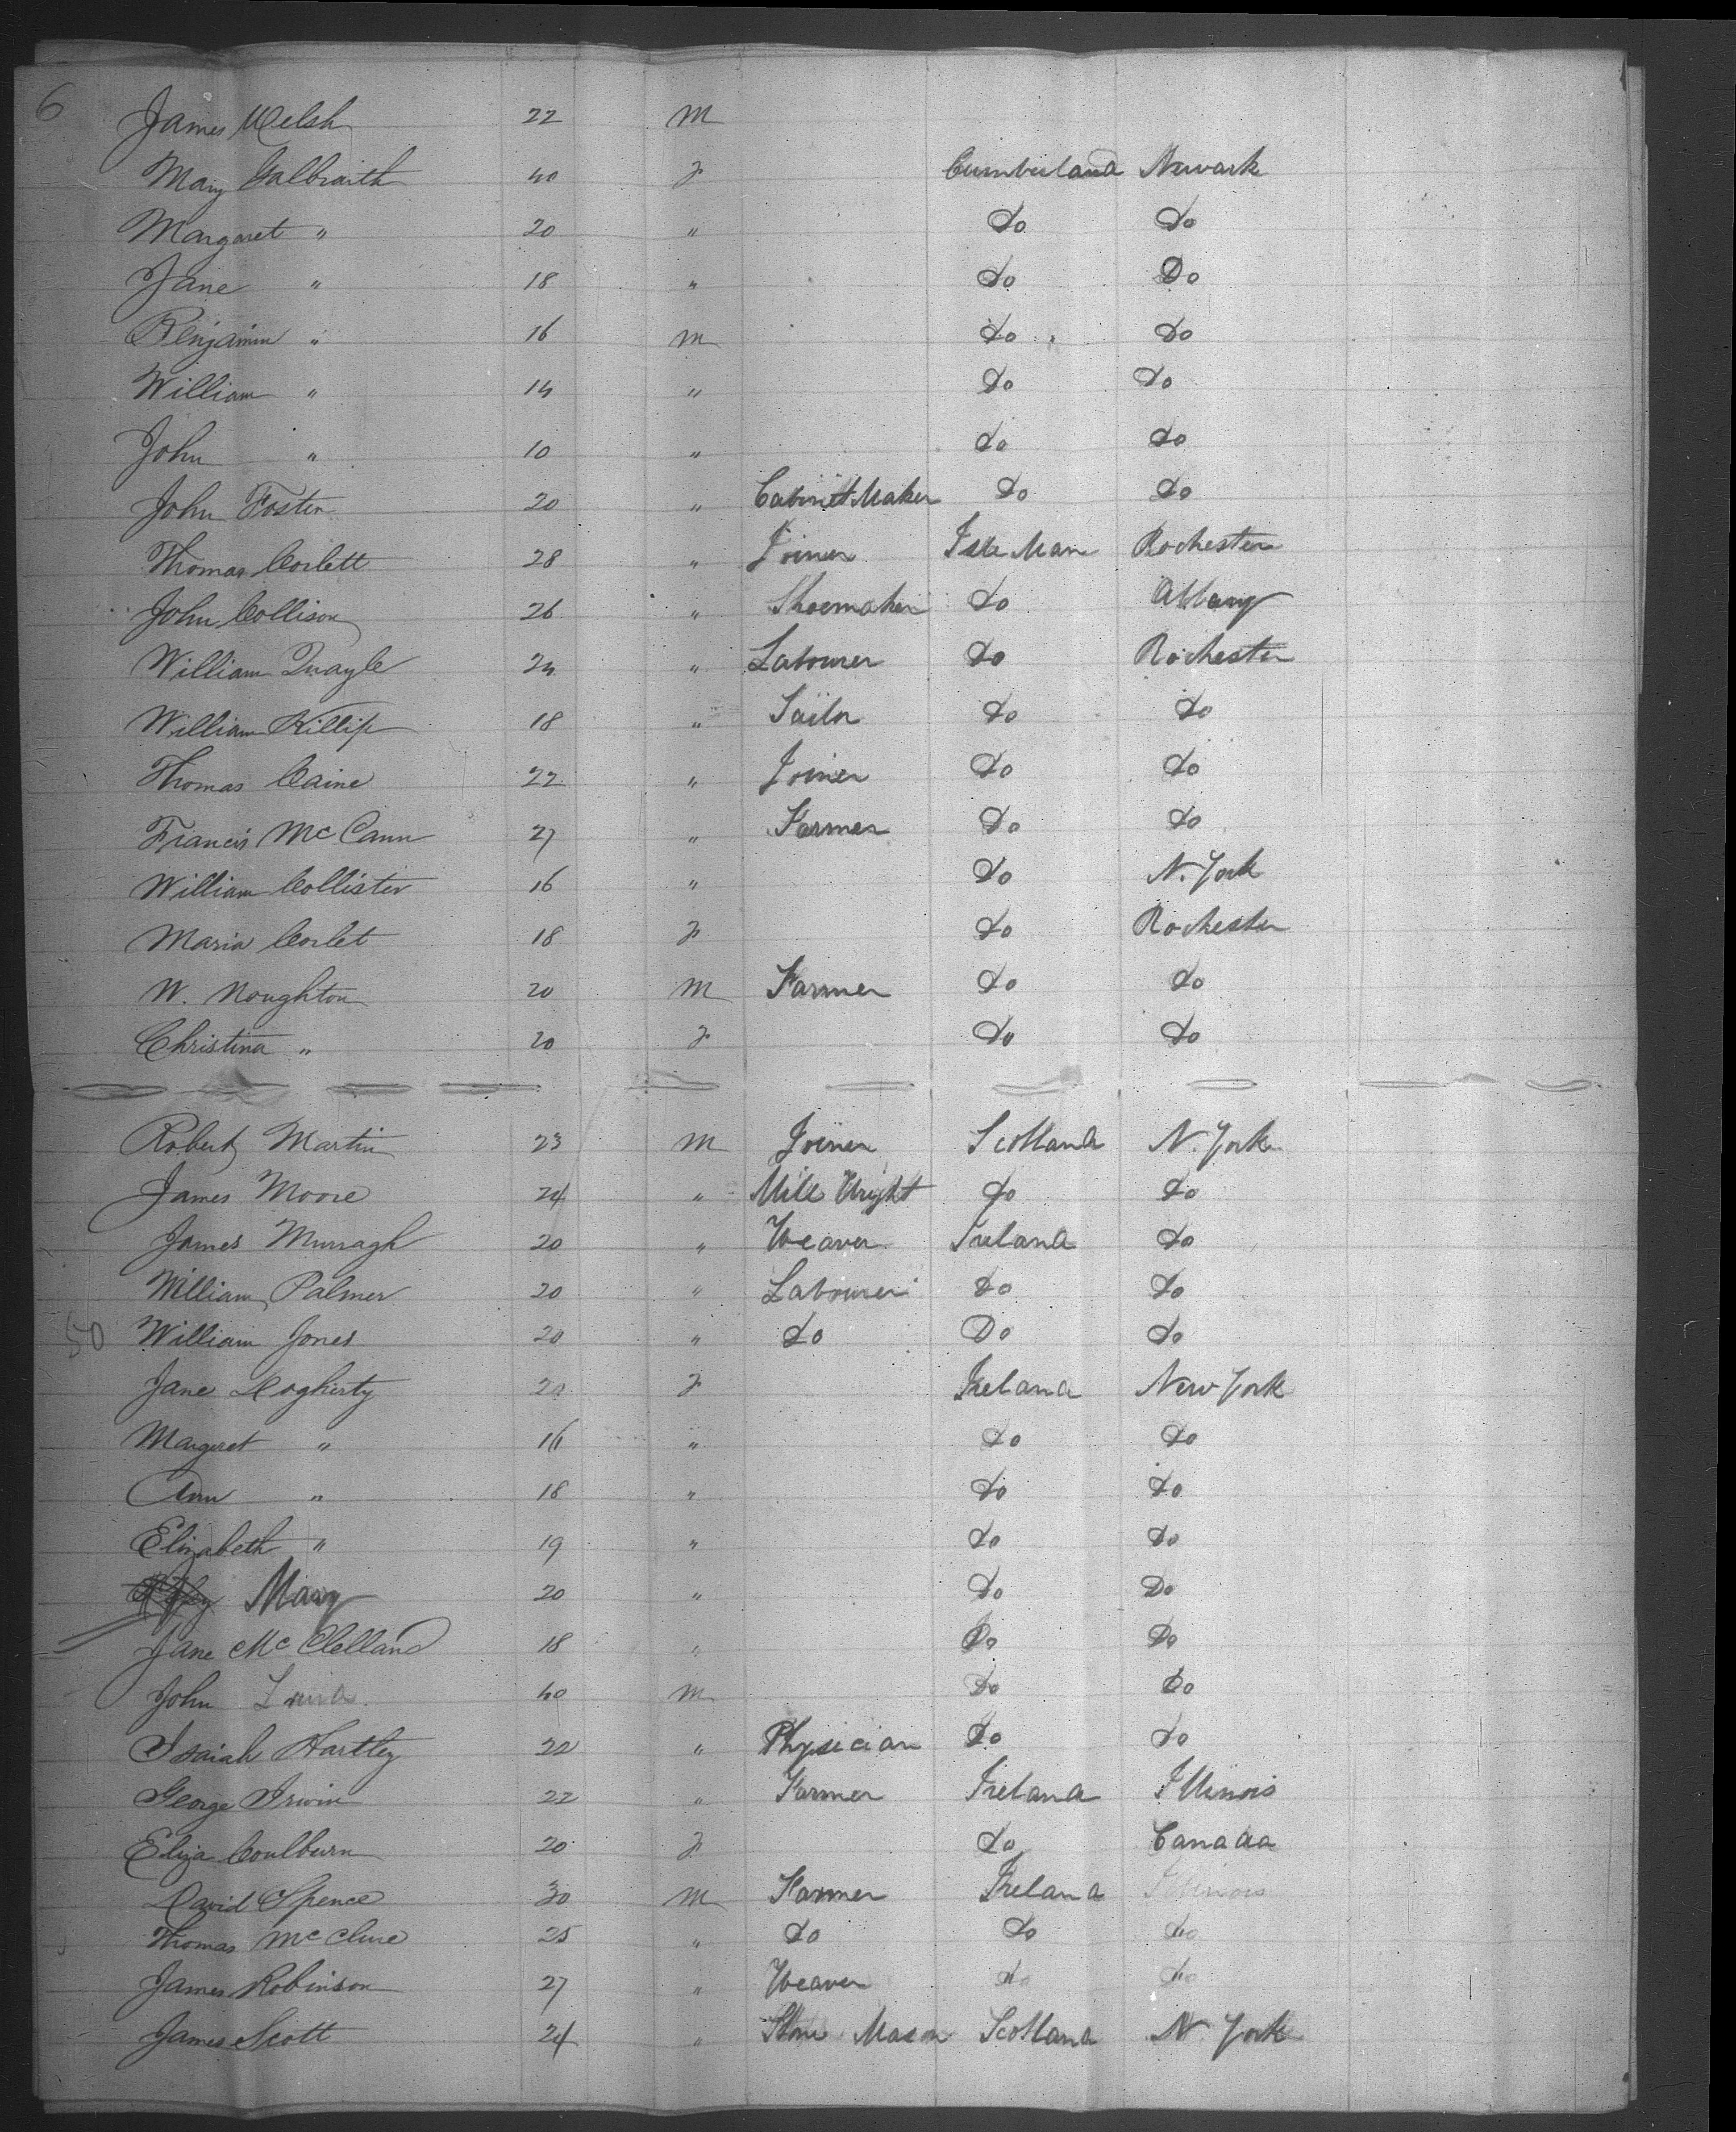 6
James Welsh 22 m
Mary Galbraith 40 F Cumberland Newark
Margaret " 20 " Do Do
Jane " 18 " Do Do
Benjamin " 16 m Do Do
William " 14 " Do Do
John " 10 " Do Do
John Foster 20 " Cabinet Maker Do Do
Thomas Corlett 28 " Joiner Isle Man Rochester
John Collison 26 " Shoemaker Do Albany
William Quayle 24 " Labourer Do Rochester
William Killip 18 " Do Do
Thomas Caine 22 " Joiner Do Do
Francis McCann 27 " Farmer Do Do
William Collister 16 " Do N. York
Maria Corlet 18 F Do Rochester
W. Noughton 20 m Farmer Do Do
Christina " 20 F Do Do
Robert Martin 23 m Joiner Scotland N. York
James Moore 24 " Mill Wright Do Do
James Murragh 20 " Weaver Ireland Do
William Palmer 20 " Labourer Do Do
50 William Jones 20 " Do Do Do
Jane Dogherty 20 F Ireland New York
Margaret " 16 " Do Do
Ann " 18 " Do Do
Elizabeth " 19 " Do Do
Mary 20 " Do Do
Jane McClelland 18 " Do Do
John 40 m Do Do
Isaiah Hartley 22 " Physician Do Do
George Irwin 22 " Farmer Ireland Illinois
Eliza Coulburn 20 F Do Canada
David Spence 30 m Farmer Ireland Illinois
Thomas McClure 25 " Do Do Do
James Robinson 27 " Weaver Do Do
James Scott 24 " Stone Mason Scotland N. York